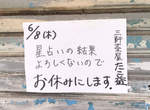 5/8(木)
星占いの結果
よろしくないので
お休みにします。
三軒茶屋